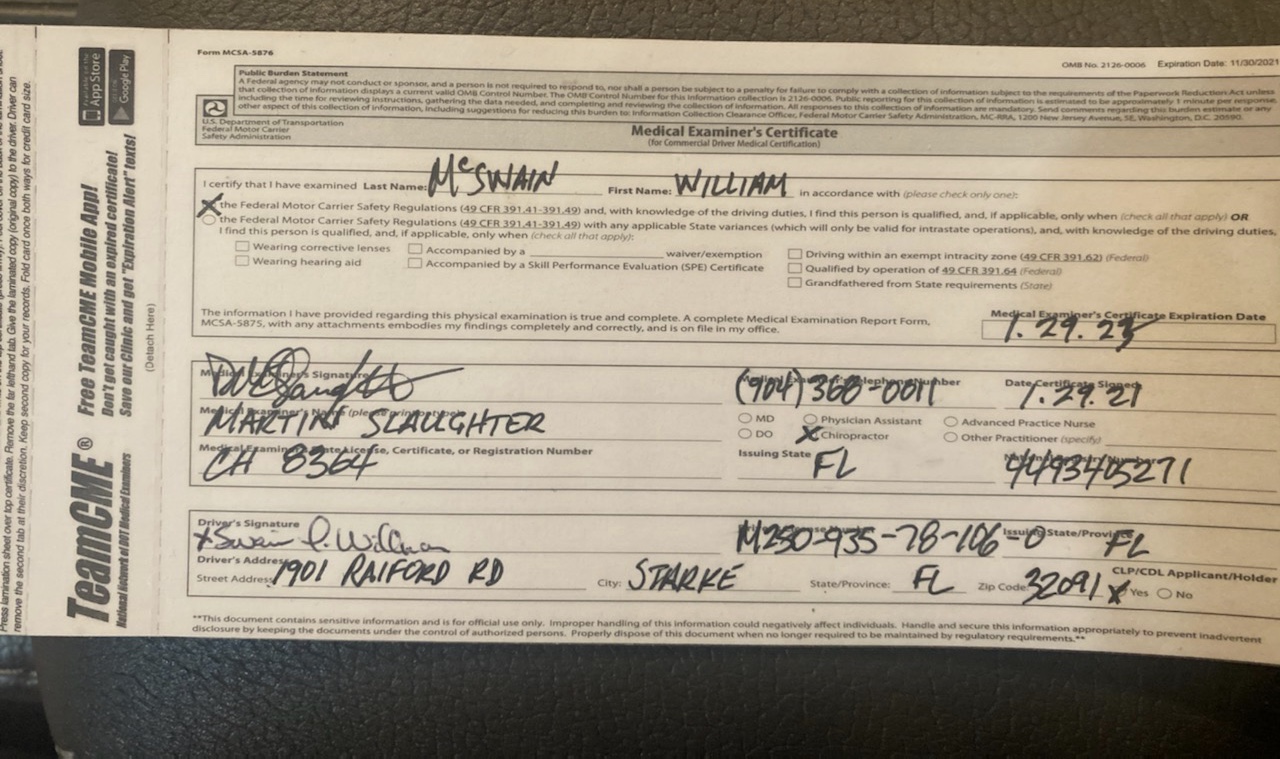 Form MCSA-5876
OMB No. 2126-0006 Expiration Date: 11/30/2021
Public Burden Statement
A Federal agency may not conduct or sponsor, and a person is not required to respond to, nor shall a person be subject to a penalty for failure to comply with a collection of information subject to the requirements of the Paperwork Reduction Act unless
that collection of information displays a current valid OMB Control Number. The OMB Control Number for this information collection is 2126-0006. Public reporting for this collection of information is estimated to be approximately 1 minute per response,
including the time for reviewing instructions, gathering the data needed, and completing and reviewing the collection of information. All responses to this collection of information are mandatory. Send comments regarding this burden estimate or any
other aspect of this collection of information, including suggestions for reducing this burden to: Information Collection Clearance Officer, Federal Motor Carrier Safety Administration, MC-RRA, 1200 New Jersey Avenue, SE, Washington, D.C. 20590.
U.S. Department of Transportation
Federal Motor Carrier
Safety Administration
Medical Examiner's Certificate
(for Commercial Driver Medical Certification)
I certify that I have examined Last Name: McSWAIN First Name: WILLIAM in accordance with (please check only one):
X the Federal Motor Carrier Safety Regulations (49 CFR 391.41-391.49) and, with knowledge of the driving duties, I find this person is qualified, and, if applicable, only when (check all that apply) OR
the Federal Motor Carrier Safety Regulations (49 CFR 391.41-391.49) with any applicable State variances (which will only be valid for intrastate operations), and, with knowledge of the driving duties,
I find this person is qualified, and, if applicable, only when (check all that apply):
Wearing corrective lenses Accompanied by a waiver/exemption Driving within an exempt intracity zone (49 CFR 391.62) (Federal)
Wearing hearing aid Accompanied by a Skill Performance Evaluation (SPE) Certificate Qualified by operation of 49 CFR 391.64 (Federal)
Grandfathered from State requirements (State)
The information I have provided regarding this physical examination is true and complete. A complete Medical Examination Report Form,
MCSA-5875, with any attachments embodies my findings completely and correctly, and is on file in my office.
Medical Examiner's Certificate Expiration Date
1.29.23
Medical Examiner's Signature
Medical Examiner's Telephone Number
(904) 368-0011
Date Certificate Signed
1.29.21
Medical Examiner's Name (please print or type)
MARTIN SLAUGHTER
MD Physician Assistant Advanced Practice Nurse
DO X Chiropractor Other Practitioner (specify)
Medical Examiner's State License, Certificate, or Registration Number
CH 8364
Issuing State
FL
National Registry Number
4493405271
Driver's Signature
Driver's License Number
M250-935-78-106-0
Issuing State/Province
FL
Driver's Address
Street Address: 1901 RAIFORD RD City: STARKE State/Province: FL Zip Code: 32091
CLP/CDL Applicant/Holder
X Yes No
**This document contains sensitive information and is for official use only. Improper handling of this information could negatively affect individuals. Handle and secure this information appropriately to prevent inadvertent
disclosure by keeping the documents under the control of authorized persons. Properly dispose of this document when no longer required to be maintained by regulatory requirements.**
remove the second tab at their discretion. Keep second copy for your records. Fold card once both ways for credit card size.
TeamCME®
National Network of DOT Medical Examiners
Free TeamCME Mobile App!
Don't get caught with an expired certificate!
Save our Clinic and get "Expiration Alert" texts!
App Store
Google Play
(Detach Here)